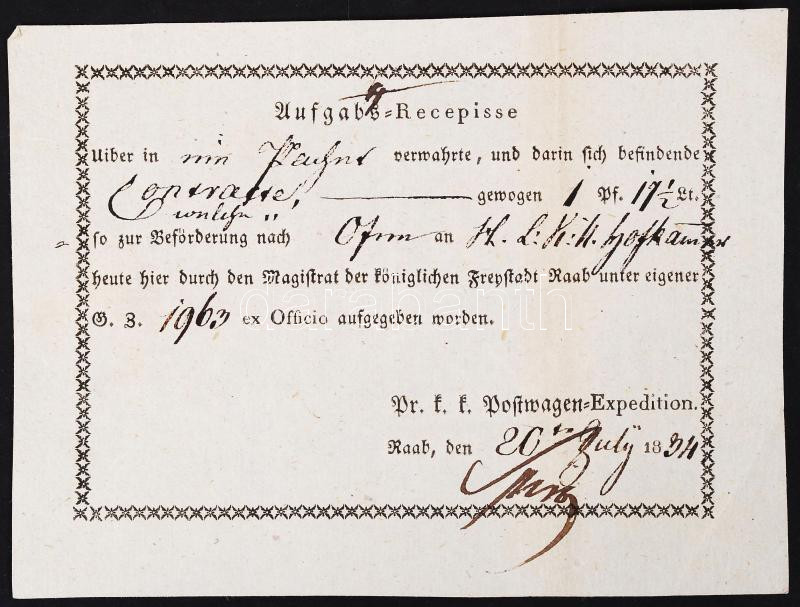 Aufgabs=Recepisse
Uiber in ein Pachet verwahrte, und darin sich befindende
Contracte, gewogen 1 Pf. 17 1/2 Lt.
welche
so zur Beförderung nach Ofen an H. L. K: U. Hofkammer
heute hier durch den Magistrat der königlichen Freystadt Raab unter eigener
G. Z. 1963 ex Officio aufgegeben worden.
darabanth
Pr. k. k. Postwagen=Expedition.
Raab, den 20ten July 1834